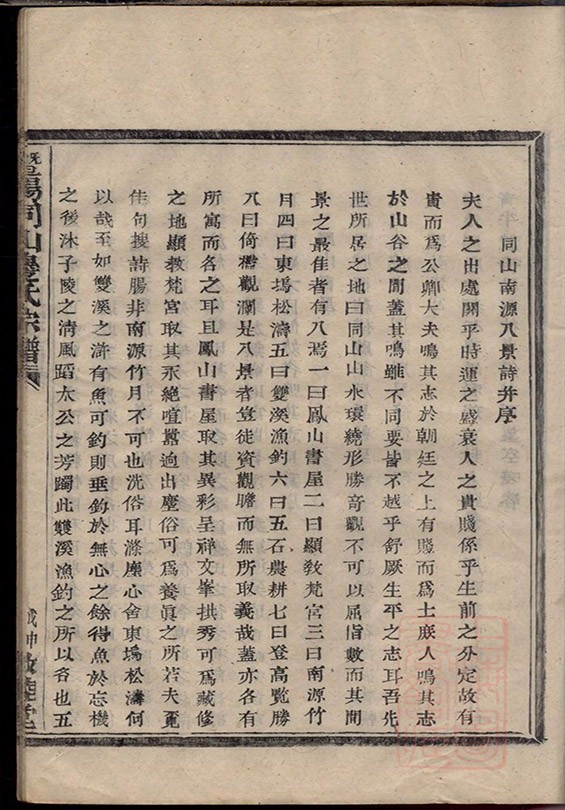 同山南源八景詩并序
夫人之出處關乎時運之盛衰人之貴賤係乎生前之分定故有
貴而爲公卿大夫鳴其志於朝廷之上有賤而爲士庶人鳴其志
於山谷之間蓋其鳴雖不同要皆不越乎舒厥生平之志耳吾先
世所居之地曰同山山水環繞形勝奇觀不可以屈指數而其間
景之最佳者有八焉一曰鳳山書屋二曰顯敎梵宮三曰南源竹
月四曰東塢松濤五曰雙溪漁釣六曰五石農耕七曰登高覽勝
八曰倚檻觀瀾是八景者豈徒資觀瞻而無所取義哉蓋亦各有
所寓而名之耳且鳳山書屋取其異彩呈祥文峯拱秀可爲藏修
之地顯教梵宮取其永絶喧囂逈出塵俗可爲養眞之所若夫覓
佳句搜詩腸非南源竹月不可也洗俗耳滌塵心舍東塢松濤何
以哉至如雙溪之滸有魚可釣則垂釣於無心之餘得魚於忘機
之後沐子陵之清風蹈太公之芳躅此雙溪漁釣之所以名也五
暨陽同山邊氏宗譜
戊申 敦睦堂